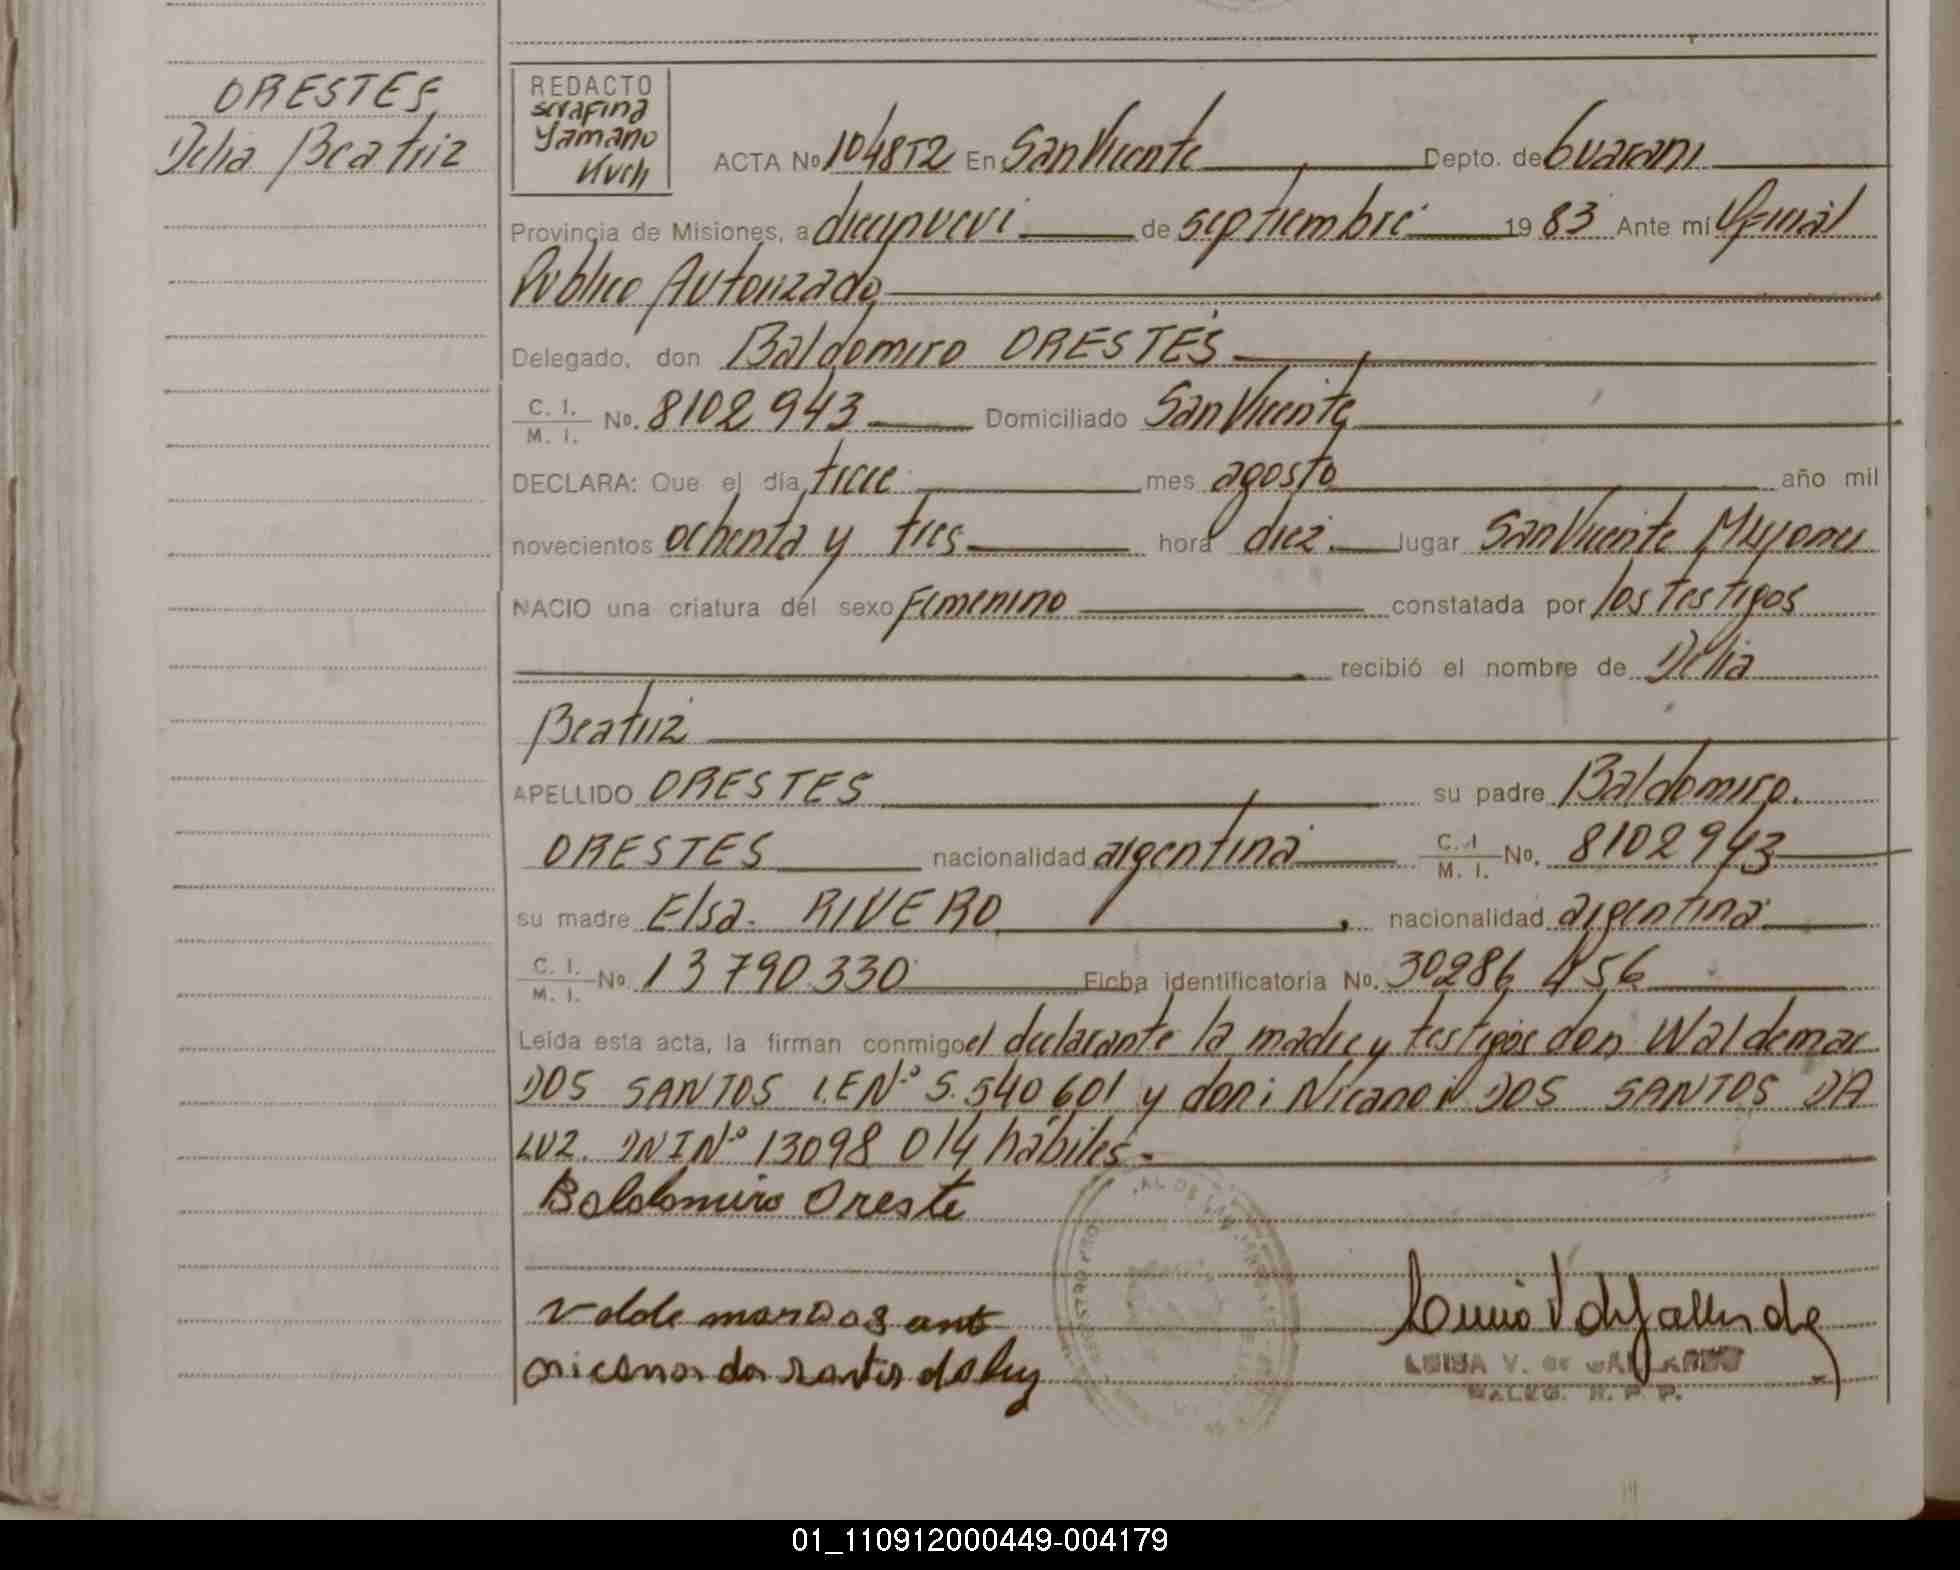 ORESTES
Delia Beatriz
REDACTO
serafina
Yamano
Kuch
ACTA No 1048T2 En San Vicente Depto. de Guarani
Provincia de Misiones, a diecinueve de septiembre 1983 Ante mí Oficial
Publico Autorizado
Delegado, don Baldomiro ORESTES
C. I. / M. I. No. 8102943 Domiciliado San Vicente
DECLARA: Que el día trece mes agosto año mil
novecientos ochenta y tres hora diez. lugar San Vicente Misiones
NACIO una criatura del sexo Femenino constatada por los testigos
recibió el nombre de Delia
Beatriz
APELLIDO ORESTES su padre Baldomiro.
ORESTES nacionalidad argentina C. I / M. I. No. 8102943
su madre Elsa. RIVERO nacionalidad argentina
C. I. / M. I. No. 13790330 Ficha identificatoria No. 30286456
Leída esta acta, la firman conmigo el declarante la madre y testigos don Waldemar
DOS SANTOS L.E Nº 5.540601 y don: Nicanor DOS SANTOS DA
LUZ. DNI Nº 13098014 habiles.-
Baldomiro Oreste
Valdemar Dos anto
nicanor dos santos da luz
LUISA V. de GALLARDO
R. P. P.
01_110912000449-004179